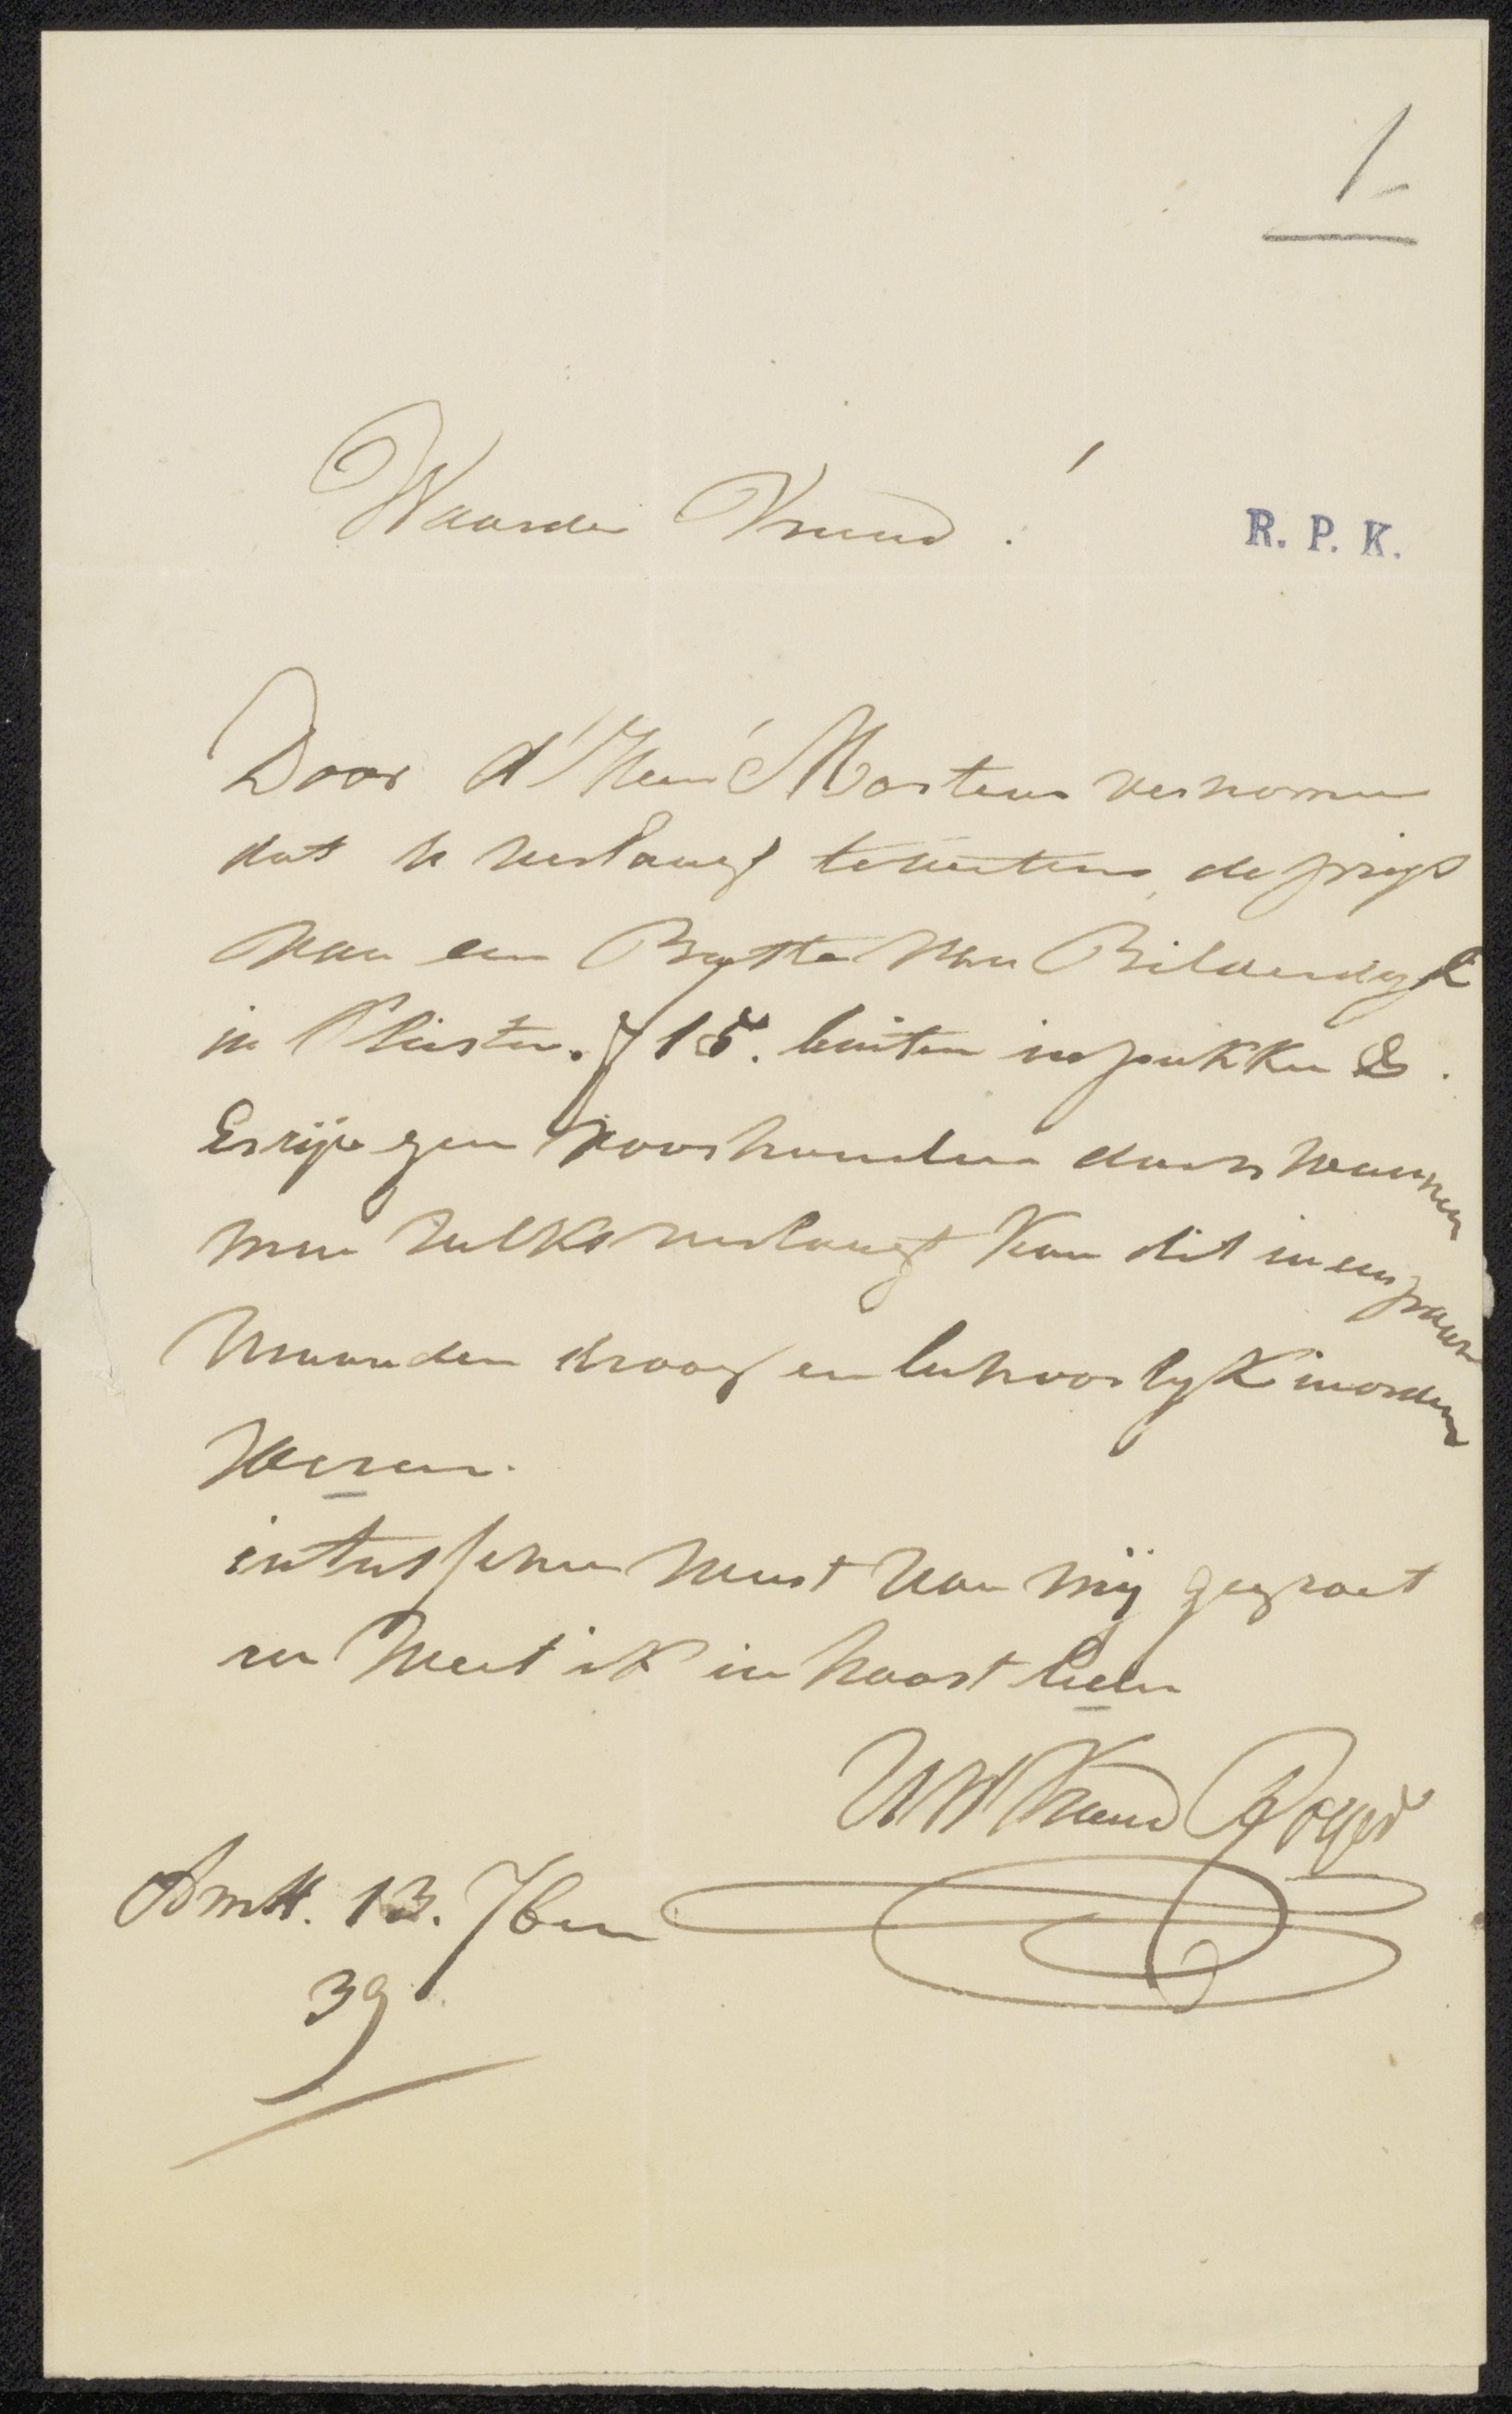 1
Waarde Vriend!
R. P. K.
Door d'Heer Mortens vernomen
dat u verlangt te weeten de prijs
van een Buste van Bilderdyk
in Pleister. f 15. buiten inpakken &.
Er zijn geen voorhanden doch wanneer
men zulks verlangt kan dit in een paar
maanden droog en behoorlyk in orden
Wezen.
intusschen weest van mij gegroet
en Weet ik in haast
UW Vriend Royer
Amst. 13. 7ber
39